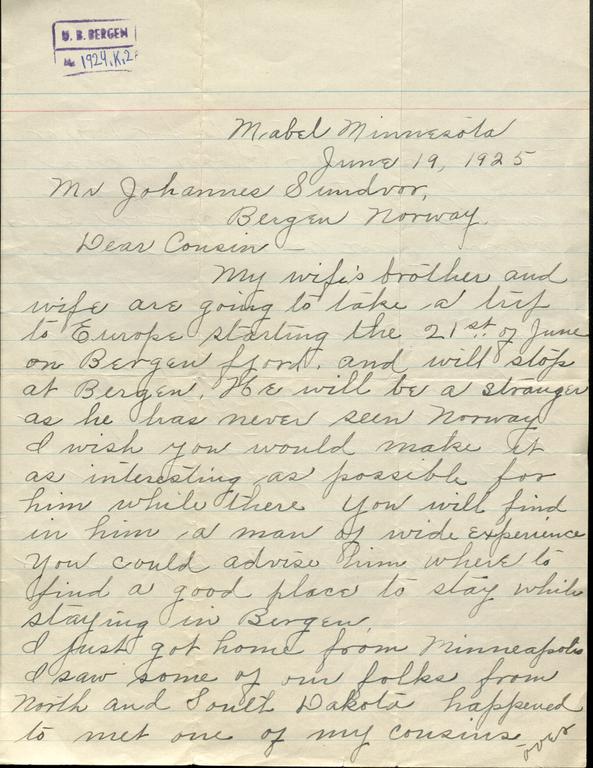 U. B. BERGEN
1924.K.2
Mabel Minnesota
June 19, 1925
Mr Johannes Sundvor,
Bergen Norway
Dear Cousin
My wife's brother and
wife are going to take a trip
to Europe starting the 21st. of June
on Bergen fjord. and will stop
at Bergen. He will be a stranger
as he has never seen Norway
I wish you would make it
as interesting as possible for
him while there You will find
in him a man of wide experience
You could advise him where to
find a good place to stay while
staying in Bergen.
I just got home from Minneapolis
I saw some of our folks from
North and South Dakota happened
to met one of my cousins
over